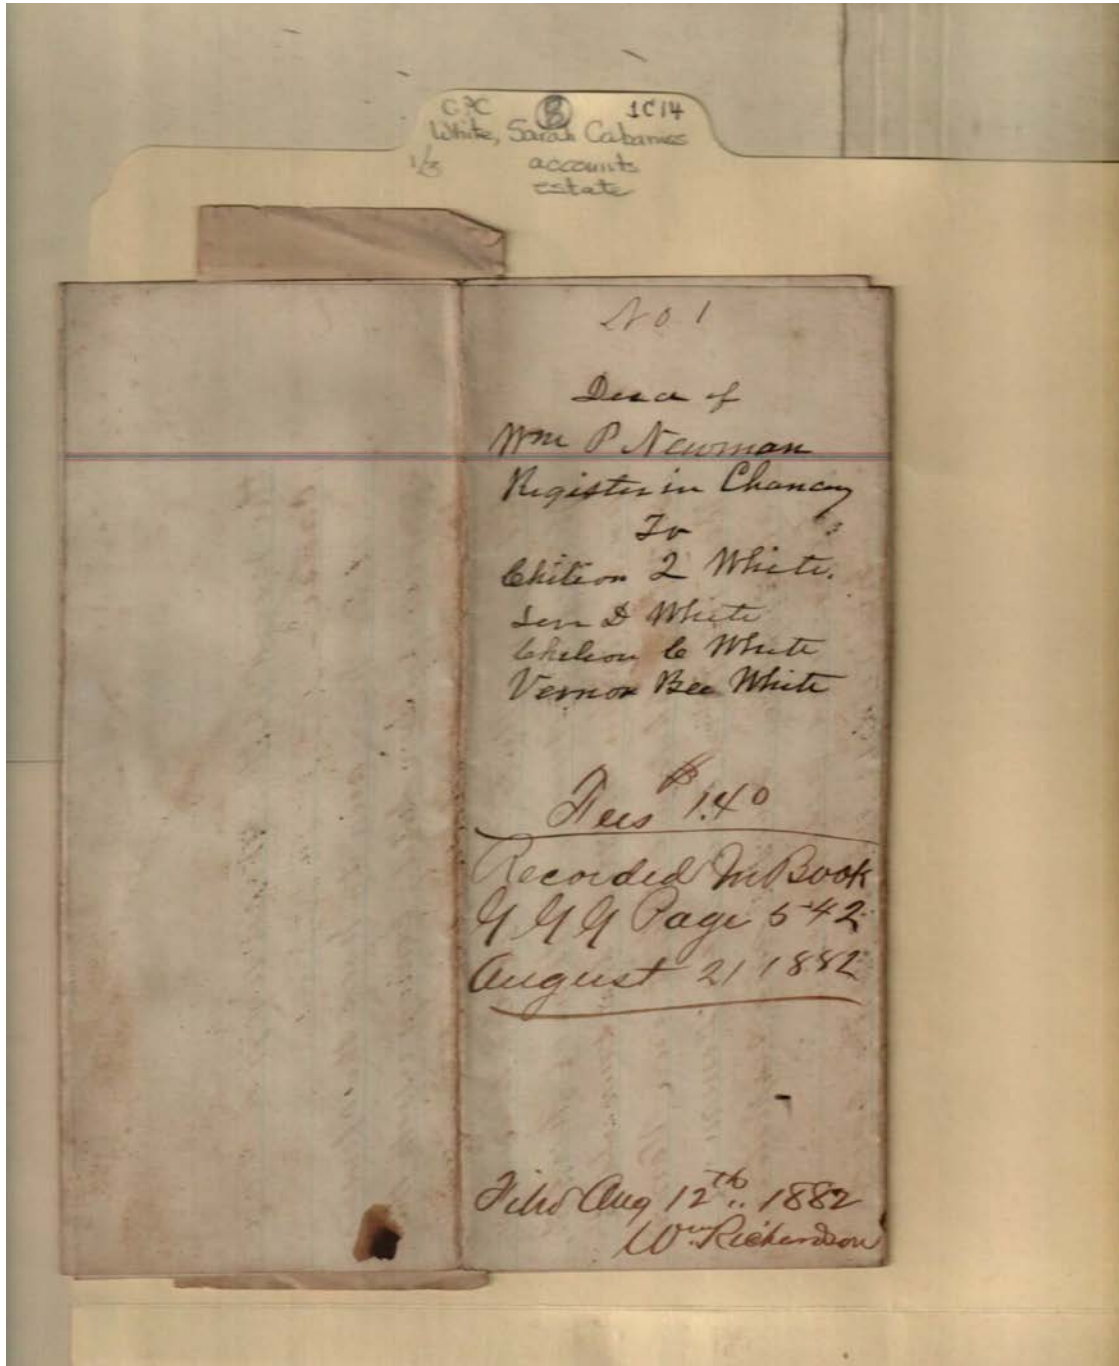 CPC 8 1C14
White, Sarah Cabaniss
1/3 accounts
estate
No 1
of
Wm P Newman
Register in Chancery
To
White.
White
White
Vernon Bee White
Fees $1.40
Recorded In Book
G G G Page 542
August 21 1882
Filed Aug 12th.. 1882
Wm Richardson